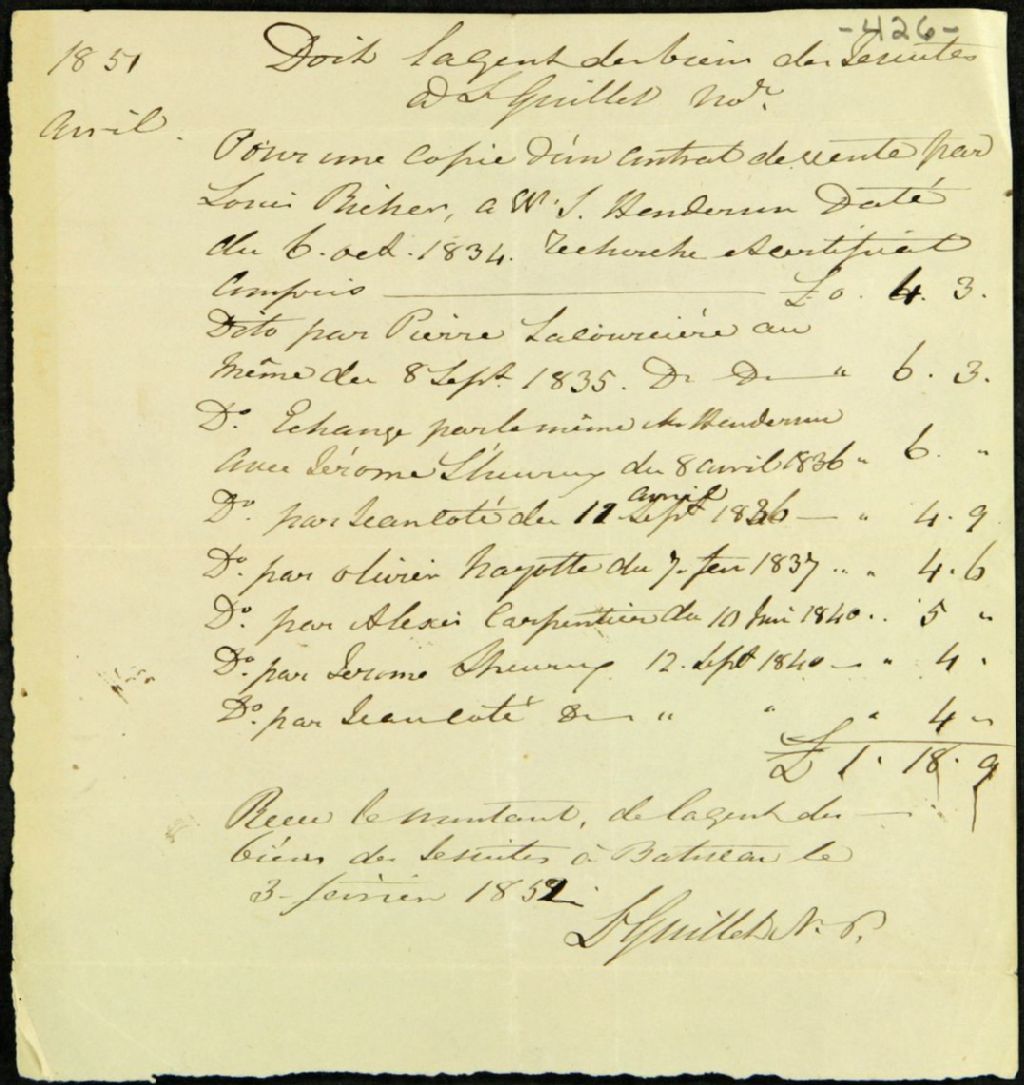 -426-
1851 Doit l'agent des biens des Jesuites
à Ls Guillet Nore.
Avril.
Pour une copie d'un contrat de vente par
Louis Richer, à W. S. Henderson Daté
du 6. oct. 1834. recherche & certificat
compris £ 0. 4. 3.
Dito par Pierre Lacoursière au
même du 8 Sept. 1835. Do Do " 6. 3.
Do. Echange par le même Mr Henderson
avec Jérome Lheureux du 8 avril 1836 " 6. "
Do. par Jean Coté du 12 avril Sept 1836 " 4. 9
Do. par Olivier Nayotte du 7. fev 1837 " " 4. 6
Do. par Alexis Carpentier du 10 Juin 1840 .. 5 "
Do. par Jerome Lheureux 12. Sept 1840 " 4 "
Do. par Jean Coté Do " " " 4 "
£ 1. 18. 9
Recu le montant, de l'agent des
biens des Jesuites à Batiscan le
3 fevrier 1852
Ls Guillet N. P.